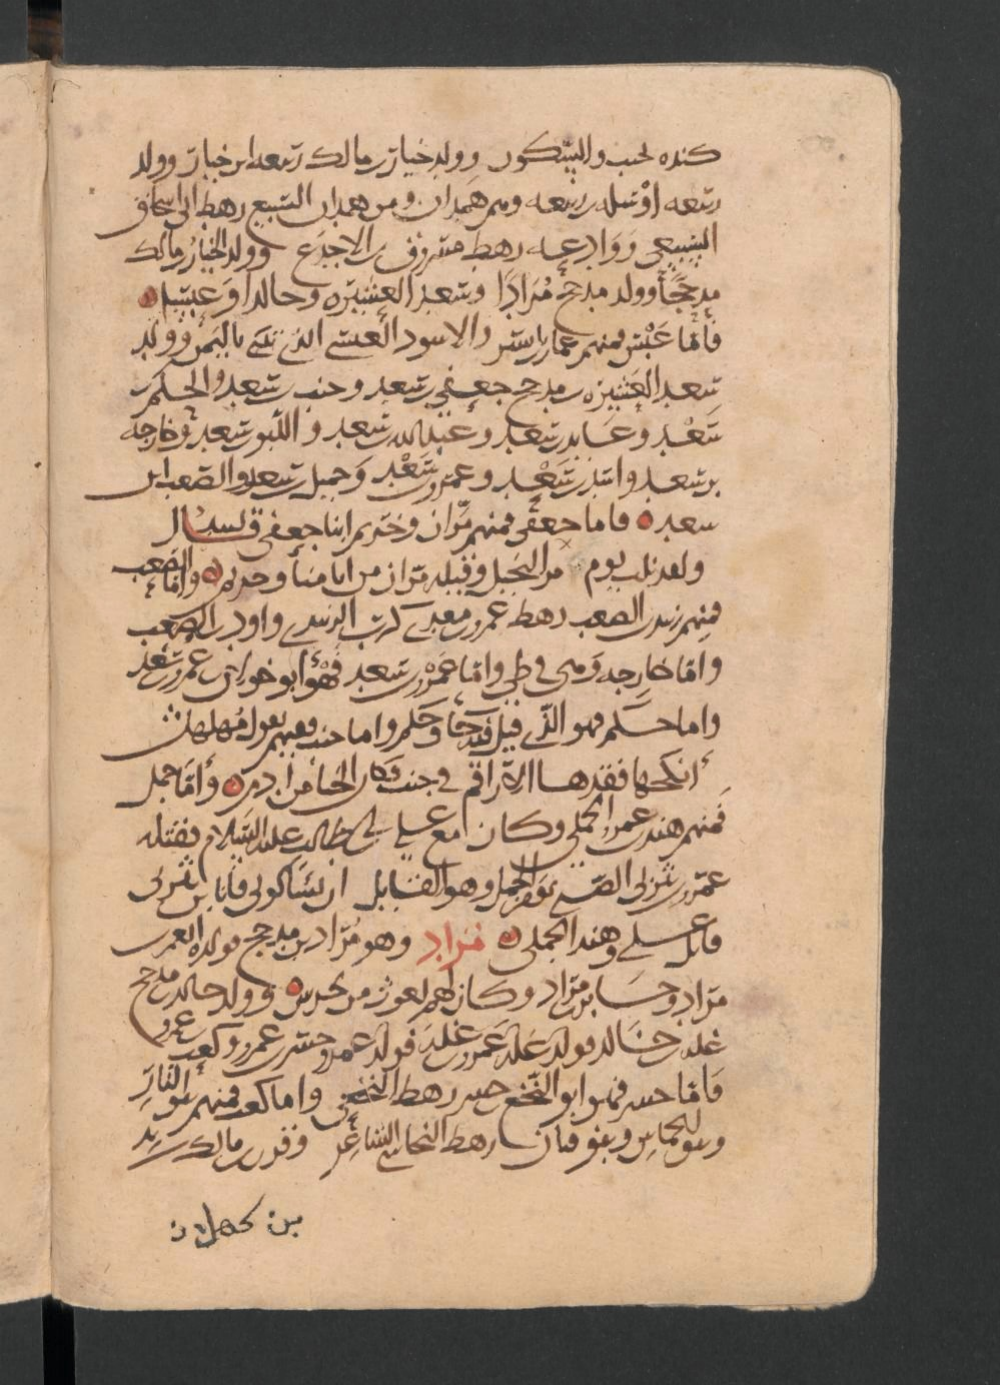 كنده تجيب والسكون وولد خيار بن مالك ربيعه ابن خيار وولد
ربيعه اوسله بن ربيعه وهم همدان ومن همدان السبيع رهط ابى اسحاق
السبيعى ووادعه رهط مسروق بن الاجدع وولد الخيار بن مالك
مذحجًا وولد مذحج مُرَادًا وسعد العشيره وخالدا وعنسا
فاما عَنْس فمنهم عمار بن ياسر والاسود العنسى الذى تنبى باليمن وولد
سعد العشيره بن مذحج جعفى بن سعد وجنب بن سعد والحكم بن
سَعْد وعايذ بن سعد وعبد الله بن سعد و اللبو بن سعد وخارجه
بن سعد واسد بن سَعْد وعمرو بن سَعْد وجميل بن سعد والصعب ابن
سعد فاما جعفى فمنهم مرّان وحريم ابنا جعفى قال
واما الصعب
فمنهم زبيد بن الصعب رهط عمرو بن معدى كرب الزبيدى واود بن الصعب
واما خارجه فهى فى طى واما عَمْرو بن سعد فهْو ابو خولان بن عمرو بن سعد
واما حكم فهو الذى قيل فيه حا وحكم واما جنب ففيهم يقول مُهلهل
أنكحها فقدها الاراقم فى جنب وكان الحبا من ادم وأمّا جمل
فمنهم هند بن عمرو الجملى وكان مع على بن ابى طالب عليه السلام فقتله
عمرو بن يثربى الضبى يوم الجمل وهو القايل ان تنكرونى فانا ابن يثربى
قاتل على وهند الجملى مُرَاد وهو مُرَاد بن مذحج فولد
مراد وكان لهم يغوث من جرش وولد خالد بن مذحج
عله بن خالد فولد عله عَمرو بن عُلَه فولد عمرو جسر بن عمرو وكعب بن عمرو
فاما جسر فهو ابو النخع بن جسر رهط النخعى واما كعب فمنهم بنو النار
وبنو الحماس وبنو قنان رهط النجاشى الشاعر وولد مالك بن زيد
بن كهلان